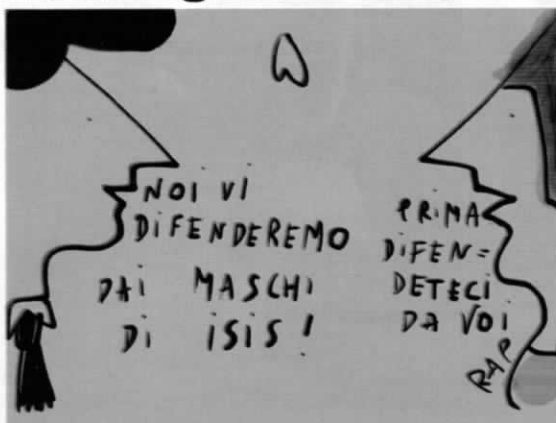 NOI VI
DIFENDEREMO
DAI MASCHI
DI ISIS!
PRIMA
DIFEN=
DETECI
DA VOI
RAP